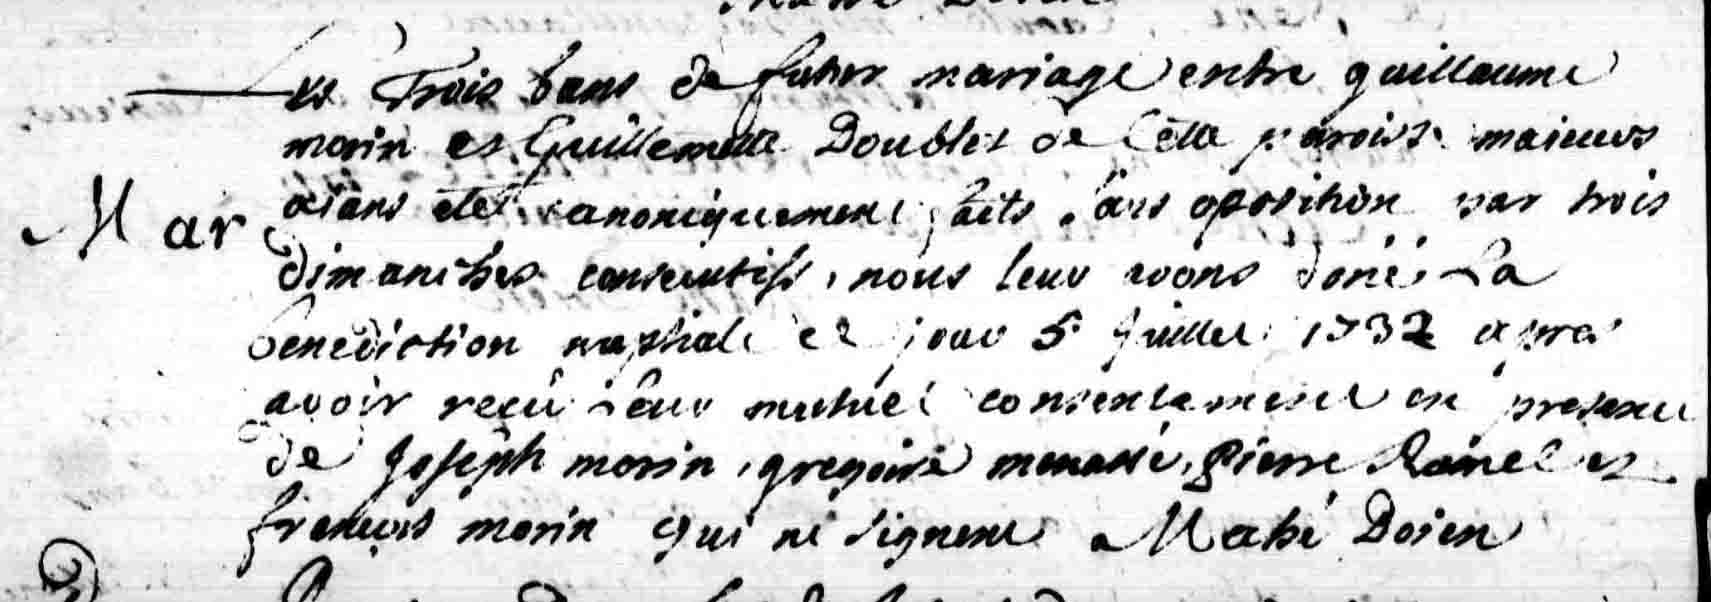 Les Trois bans de futur mariage entre guillaume
morin et Guillemette Doublet de Cette paroisse maieurs
Mar aians eté canoniquement faits sans oposition par trois
dimanches consecutifs, nous leur avons doné La
benediction nuptiale ce jour 5 juillet 1732 apres
avoir reçu Leur mutuel consentement en presence
de Joseph morin, gregoire menassé, Pierre et
francois morin qui ne signent Mahé Doien